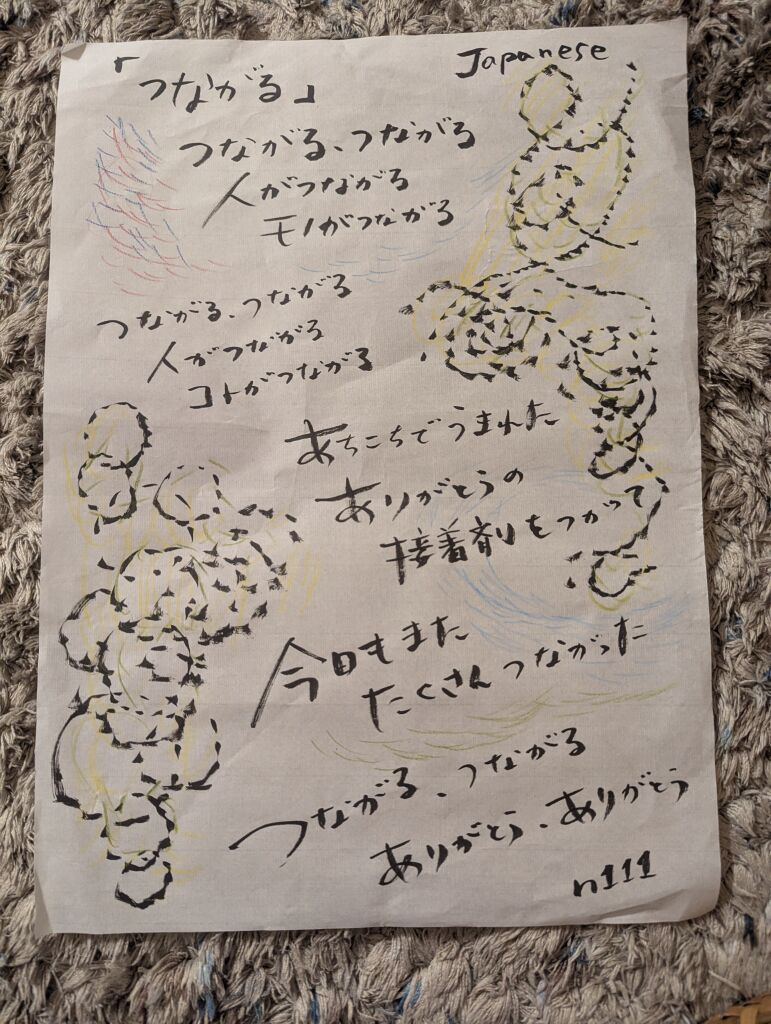 「つながる」
Japanese
つながる、つながる
人がつながる
モノがつながる
つながる、つながる
人がつながる
コトがつながる
あちこちでうまれた
ありがとうの
接着剤をつかって
今日もまた
たくさんつながった
つながる、つながる
ありがとう、ありがとう
n111